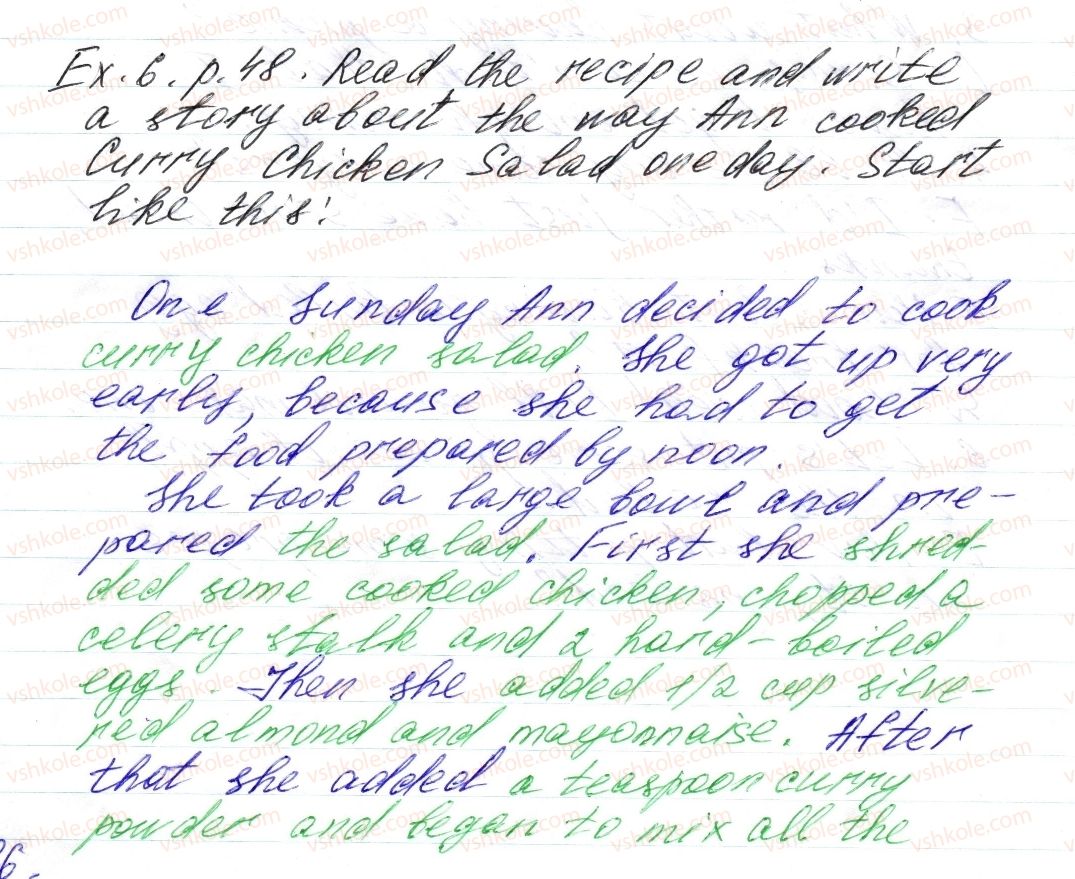 Ex. 6. p. 48. Read the recipe and write
a story about the way Ann cooked
Curry Chicken Salad one day. Start
like this:
One Sunday Ann decided to cook
curry chicken salad. She got up very
early, because she had to get
the food prepared by noon.
She took a large bowl and pre-
pared the salad. First she shred-
ded some cooked chicken, chopped a
celery stalk and 2 hard-boiled
eggs. Then she added 1/2 cup silve-
red almond and mayonnaise. After
that she added a teaspoon curry
powder and began to mix all the